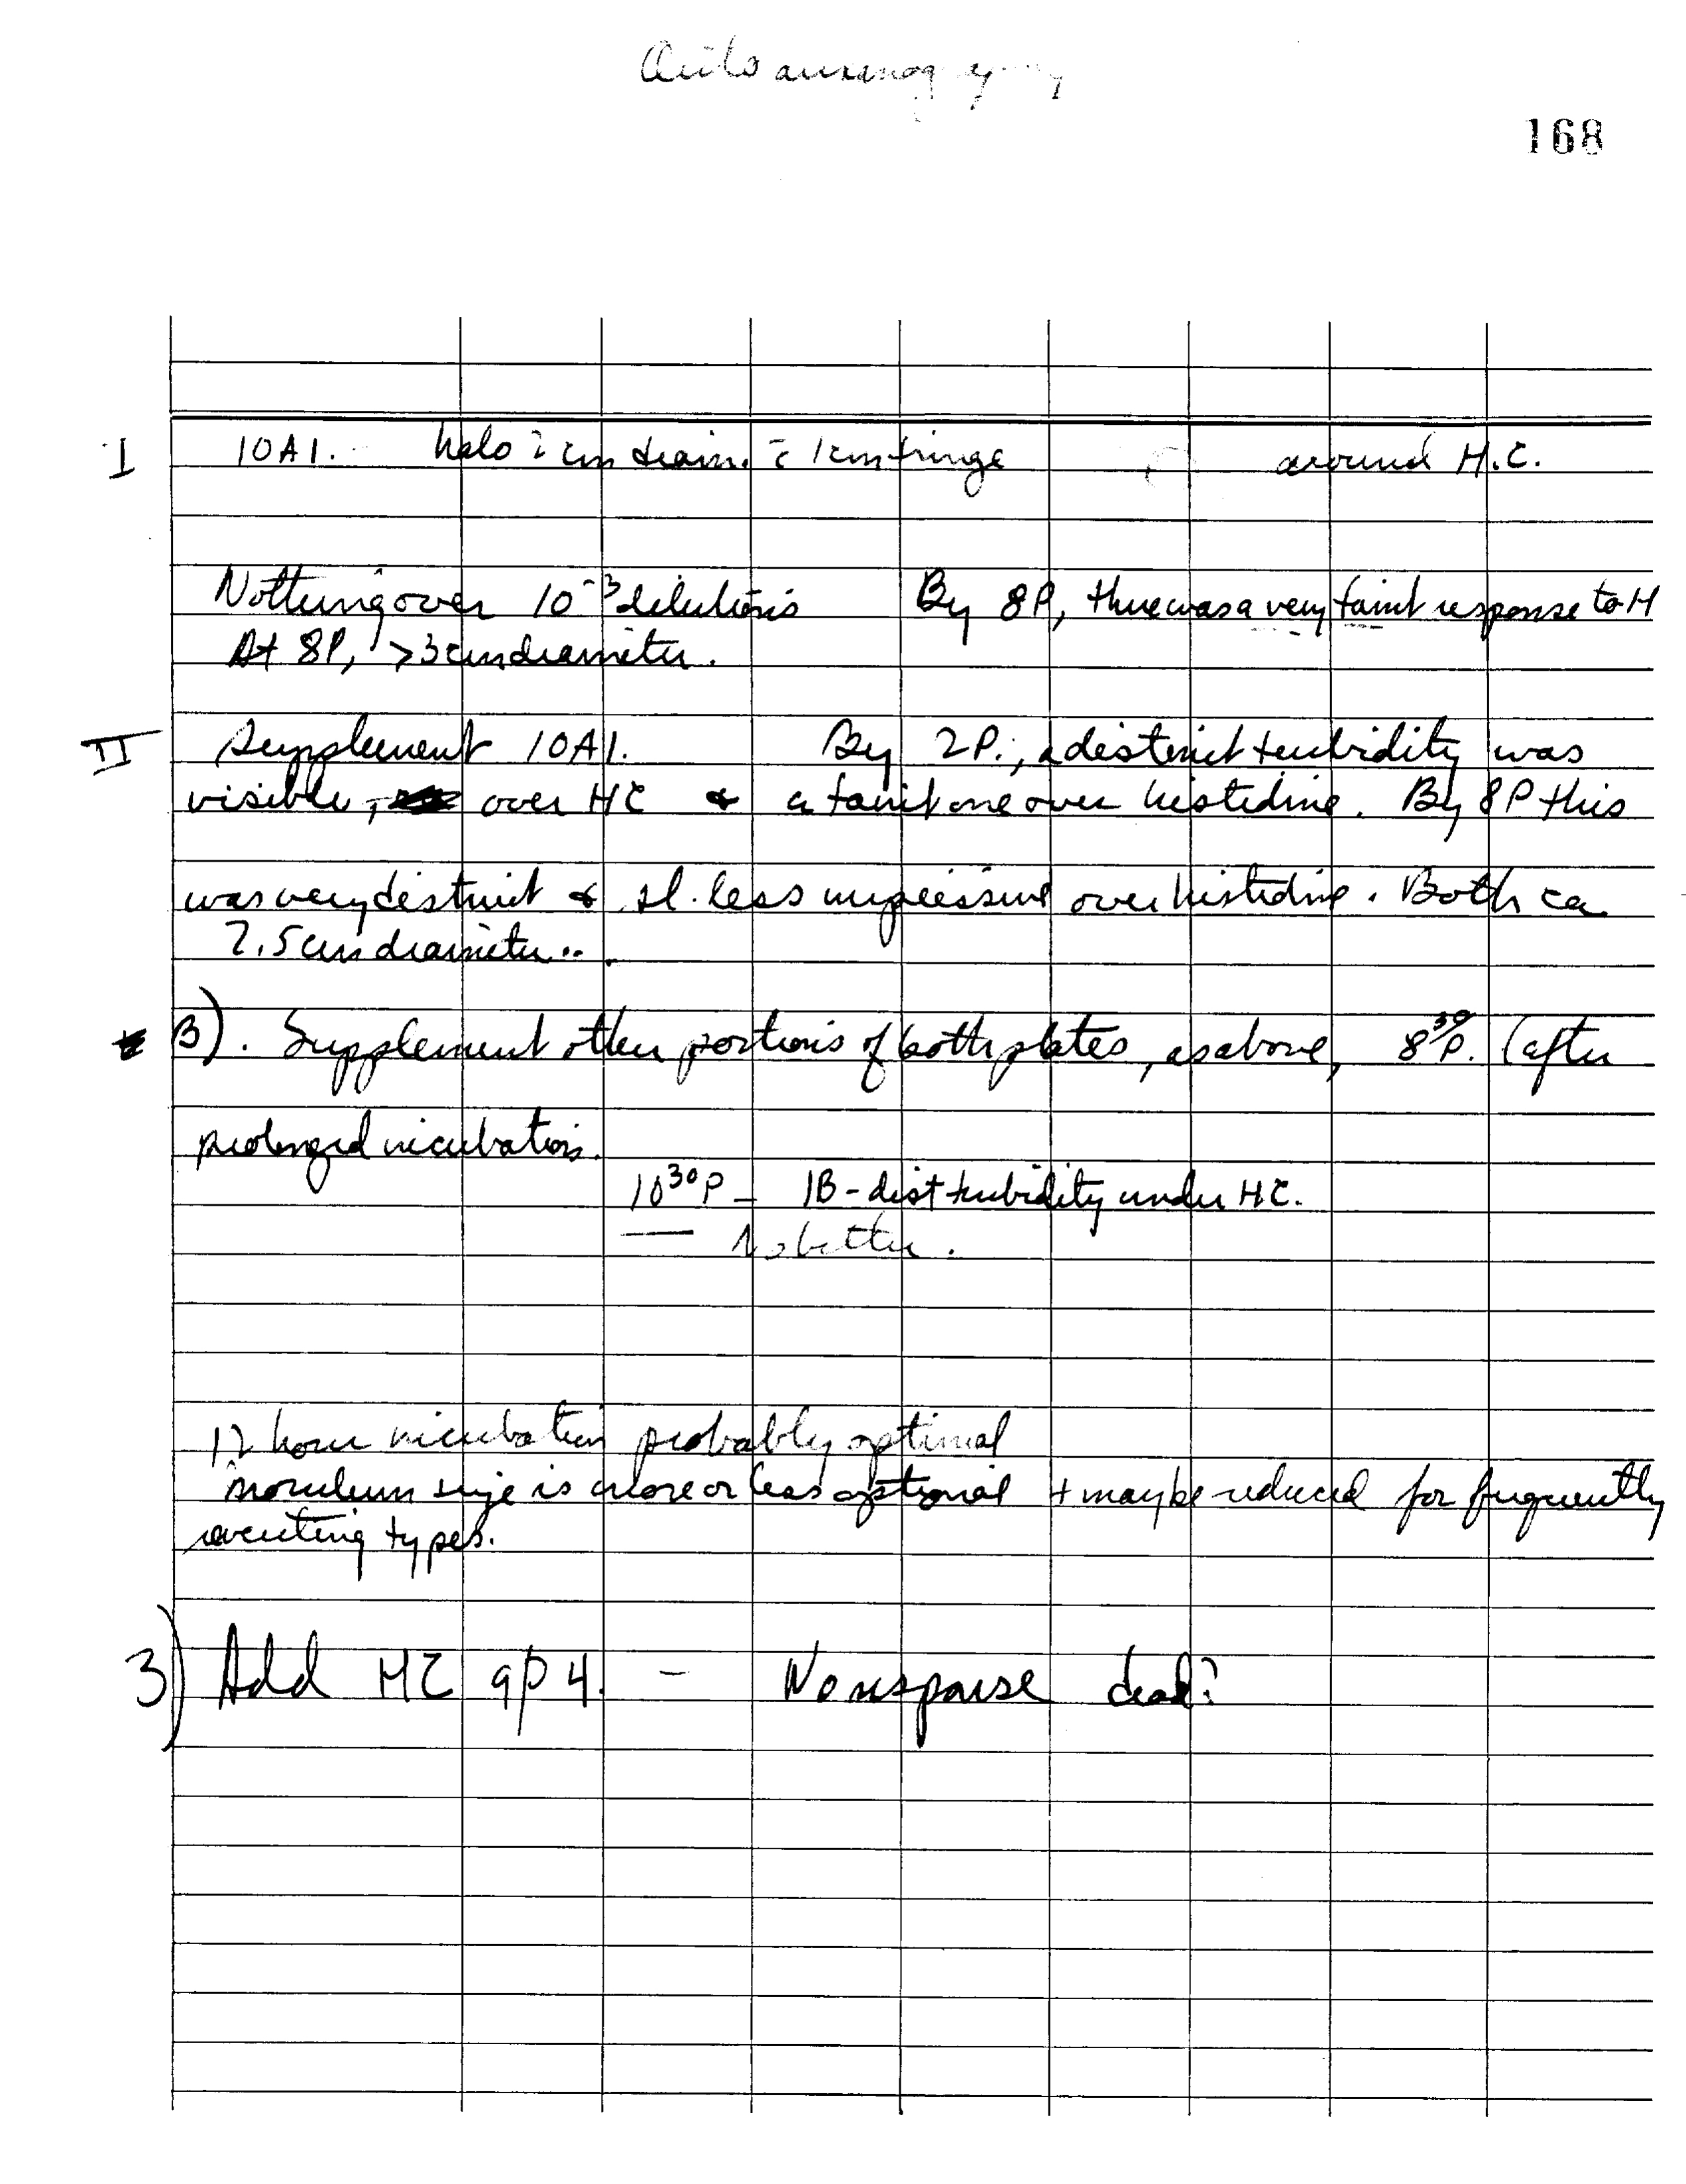 Auto auxanography
168
I 10A1. halo 2 cm diam. c̄ 1cm fringe around H.C.
Nothing over 10⁻³ dilutions By 8P, there was a very faint response to H
At 8P, >3cm diameter.
II Supplement 10A1. By 2P., a distinct turbidity was
visible, over HC & a faint one over histidine. By 8P this
was very distinct & sl. less impressive over histidine. Both ca
2.5 cm diameter..
B). Supplement other portions of both plates, as above, 8³⁰P. (after
prolonged incubation.
10³⁰P – 1B - dist turbidity under HC.
— No better.
12 hour incubation probably optimal
Inoculum size is more or less optional + may be reduced for frequently
reverting types.
3) Add HC 9P 4. – No response dead?